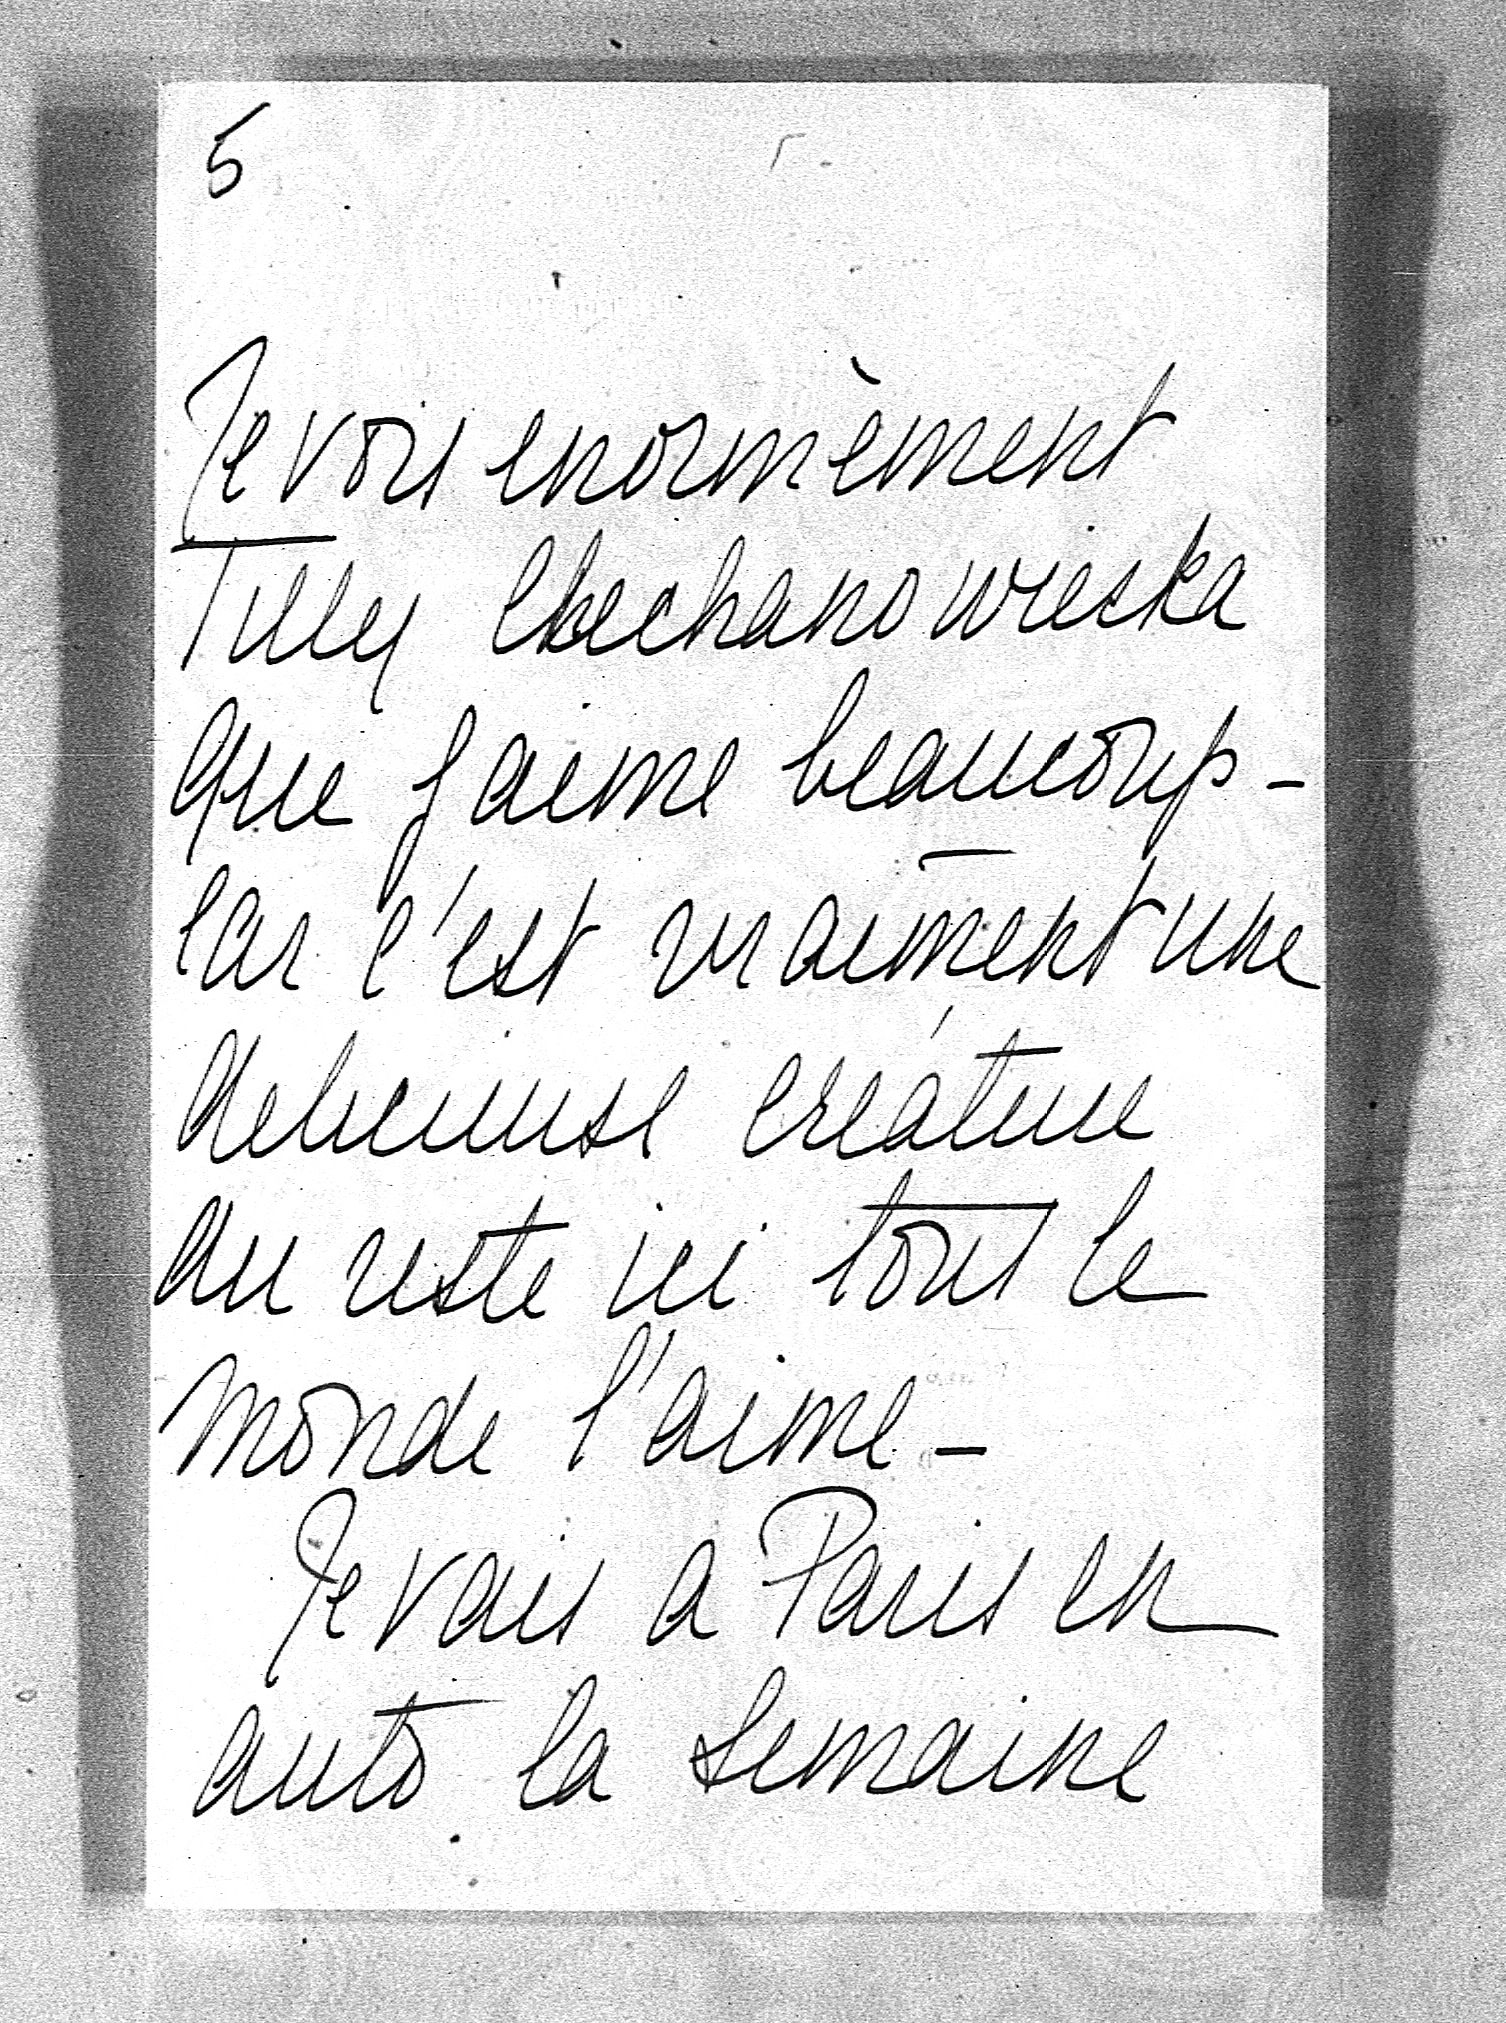 5
Je vois enormèment
Tilly Chechanowieska
que j'aime beaucoup -
car c'est vraiment une
delicieuse créature
du reste ici tout le
monde l'aime -
Je vais a Paris en
auto la semaine